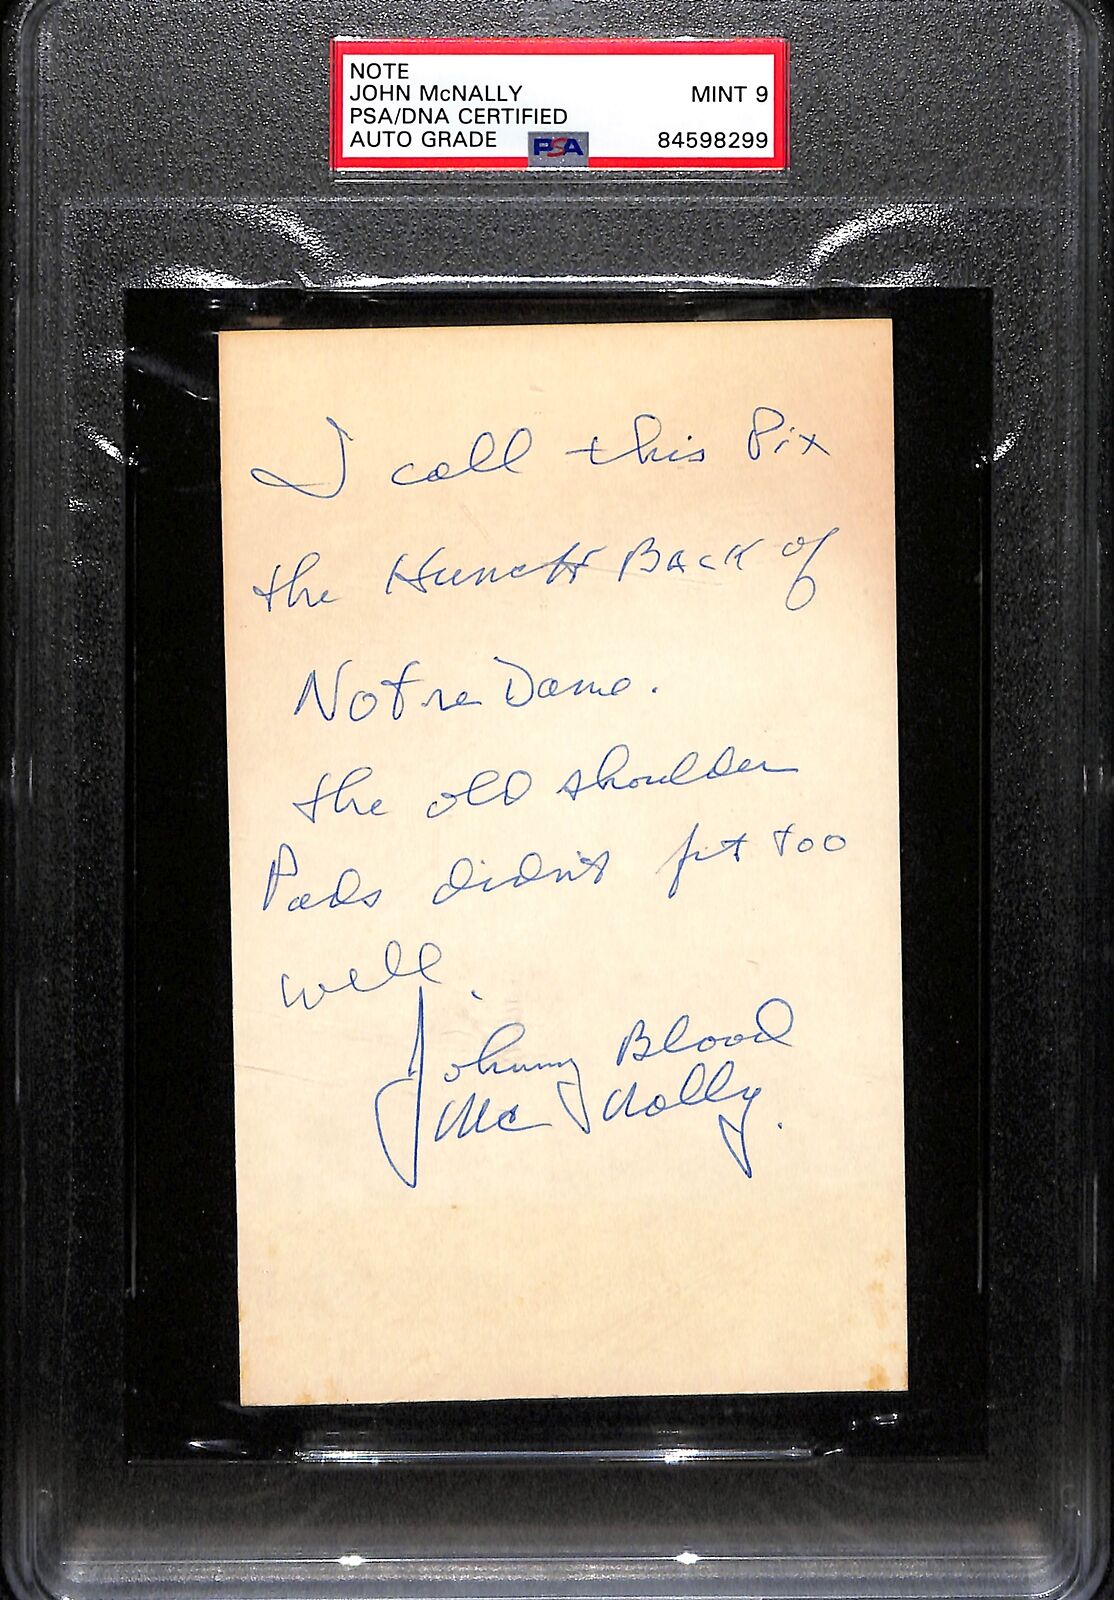 NOTE
JOHN McNALLY MINT 9
PSA/DNA CERTIFIED
AUTO GRADE PSA 84598299
I call this Pix
the Hunch BACK of
Notre Dame.
the old shoulder
Pads didn't fit too
well.
Johnny Blood
McNally.